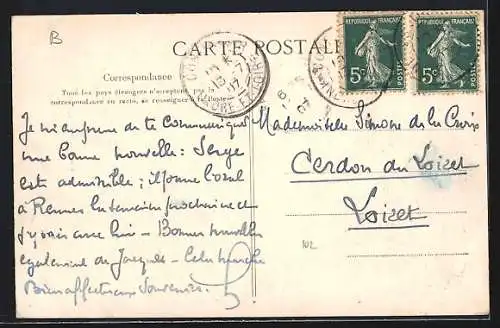 B
CARTE POSTALE
Correspondance
Tous les pays étrangers n'acceptent pas
correspondance au recto, se renseigner à la Poste
RÉPUBLIQUE FRANÇAISE
5c
POSTES
RÉPUBLIQUE FRANÇAISE
5c
POSTES
INDRE ET LOIRE
07
Je m'empresse de te communiquer
une bonne nouvelle : Serge
est admissible ; il passe l'oral
à Rennes la semaine prochaine et
j'y vais avec lui - Bonnes nouvelles
également de Jacques -
Bien affectueux souvenirs.
Mademoiselle Simone de la Croix
Cerdon du Loiret
Loiret
102